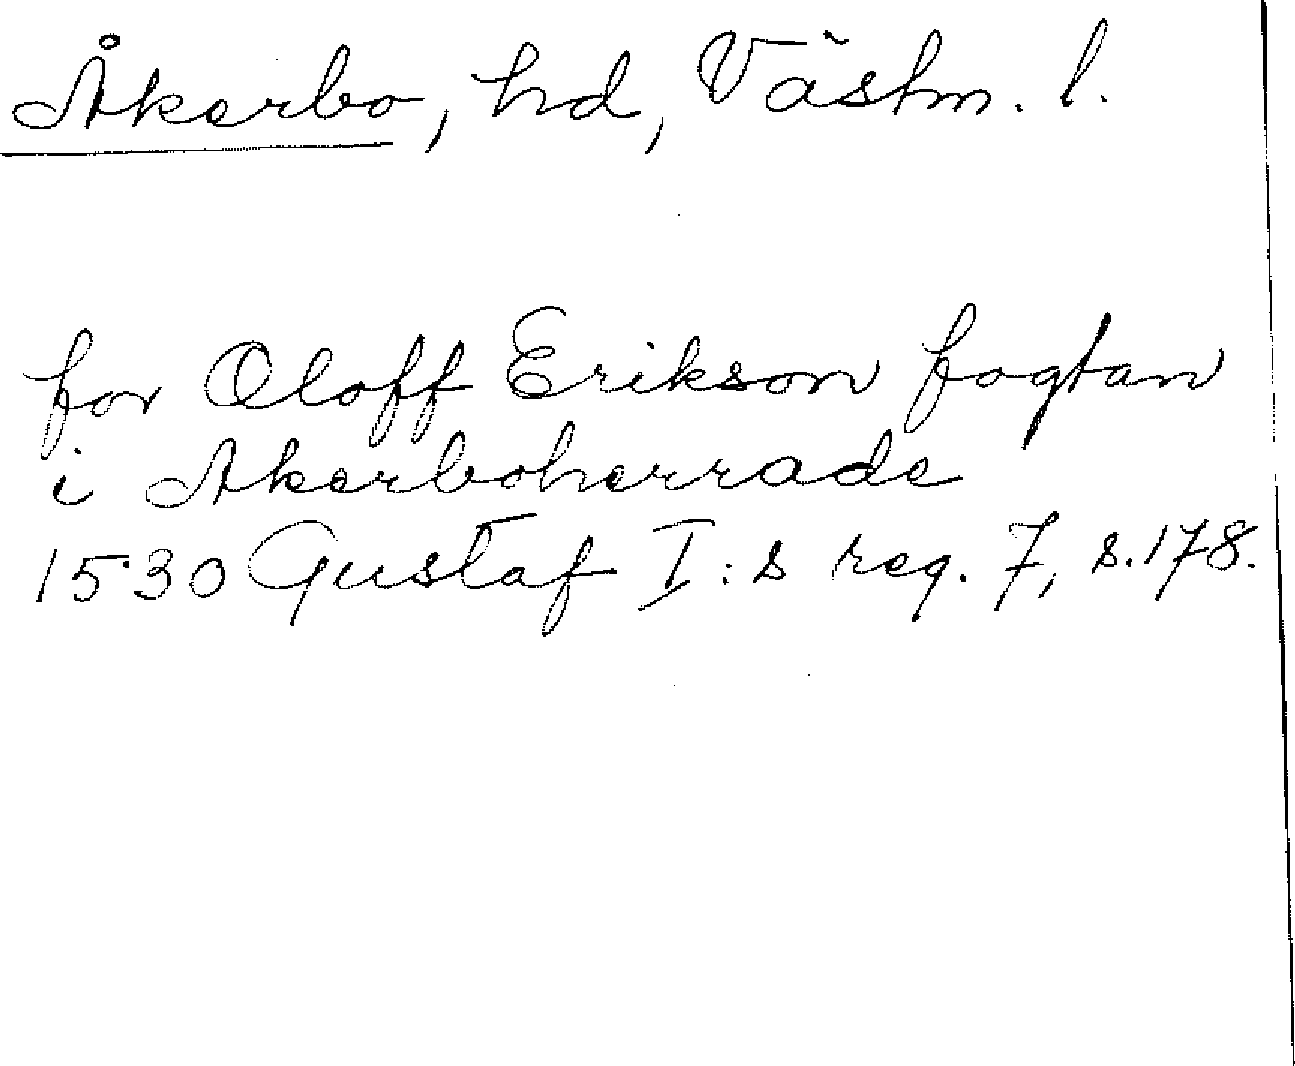 Åkerbo, hd, Västm. l.
for Oloff Erikson fogtan
i Akerboherrade
1530 Gustaf I:s reg. 7, s. 178.